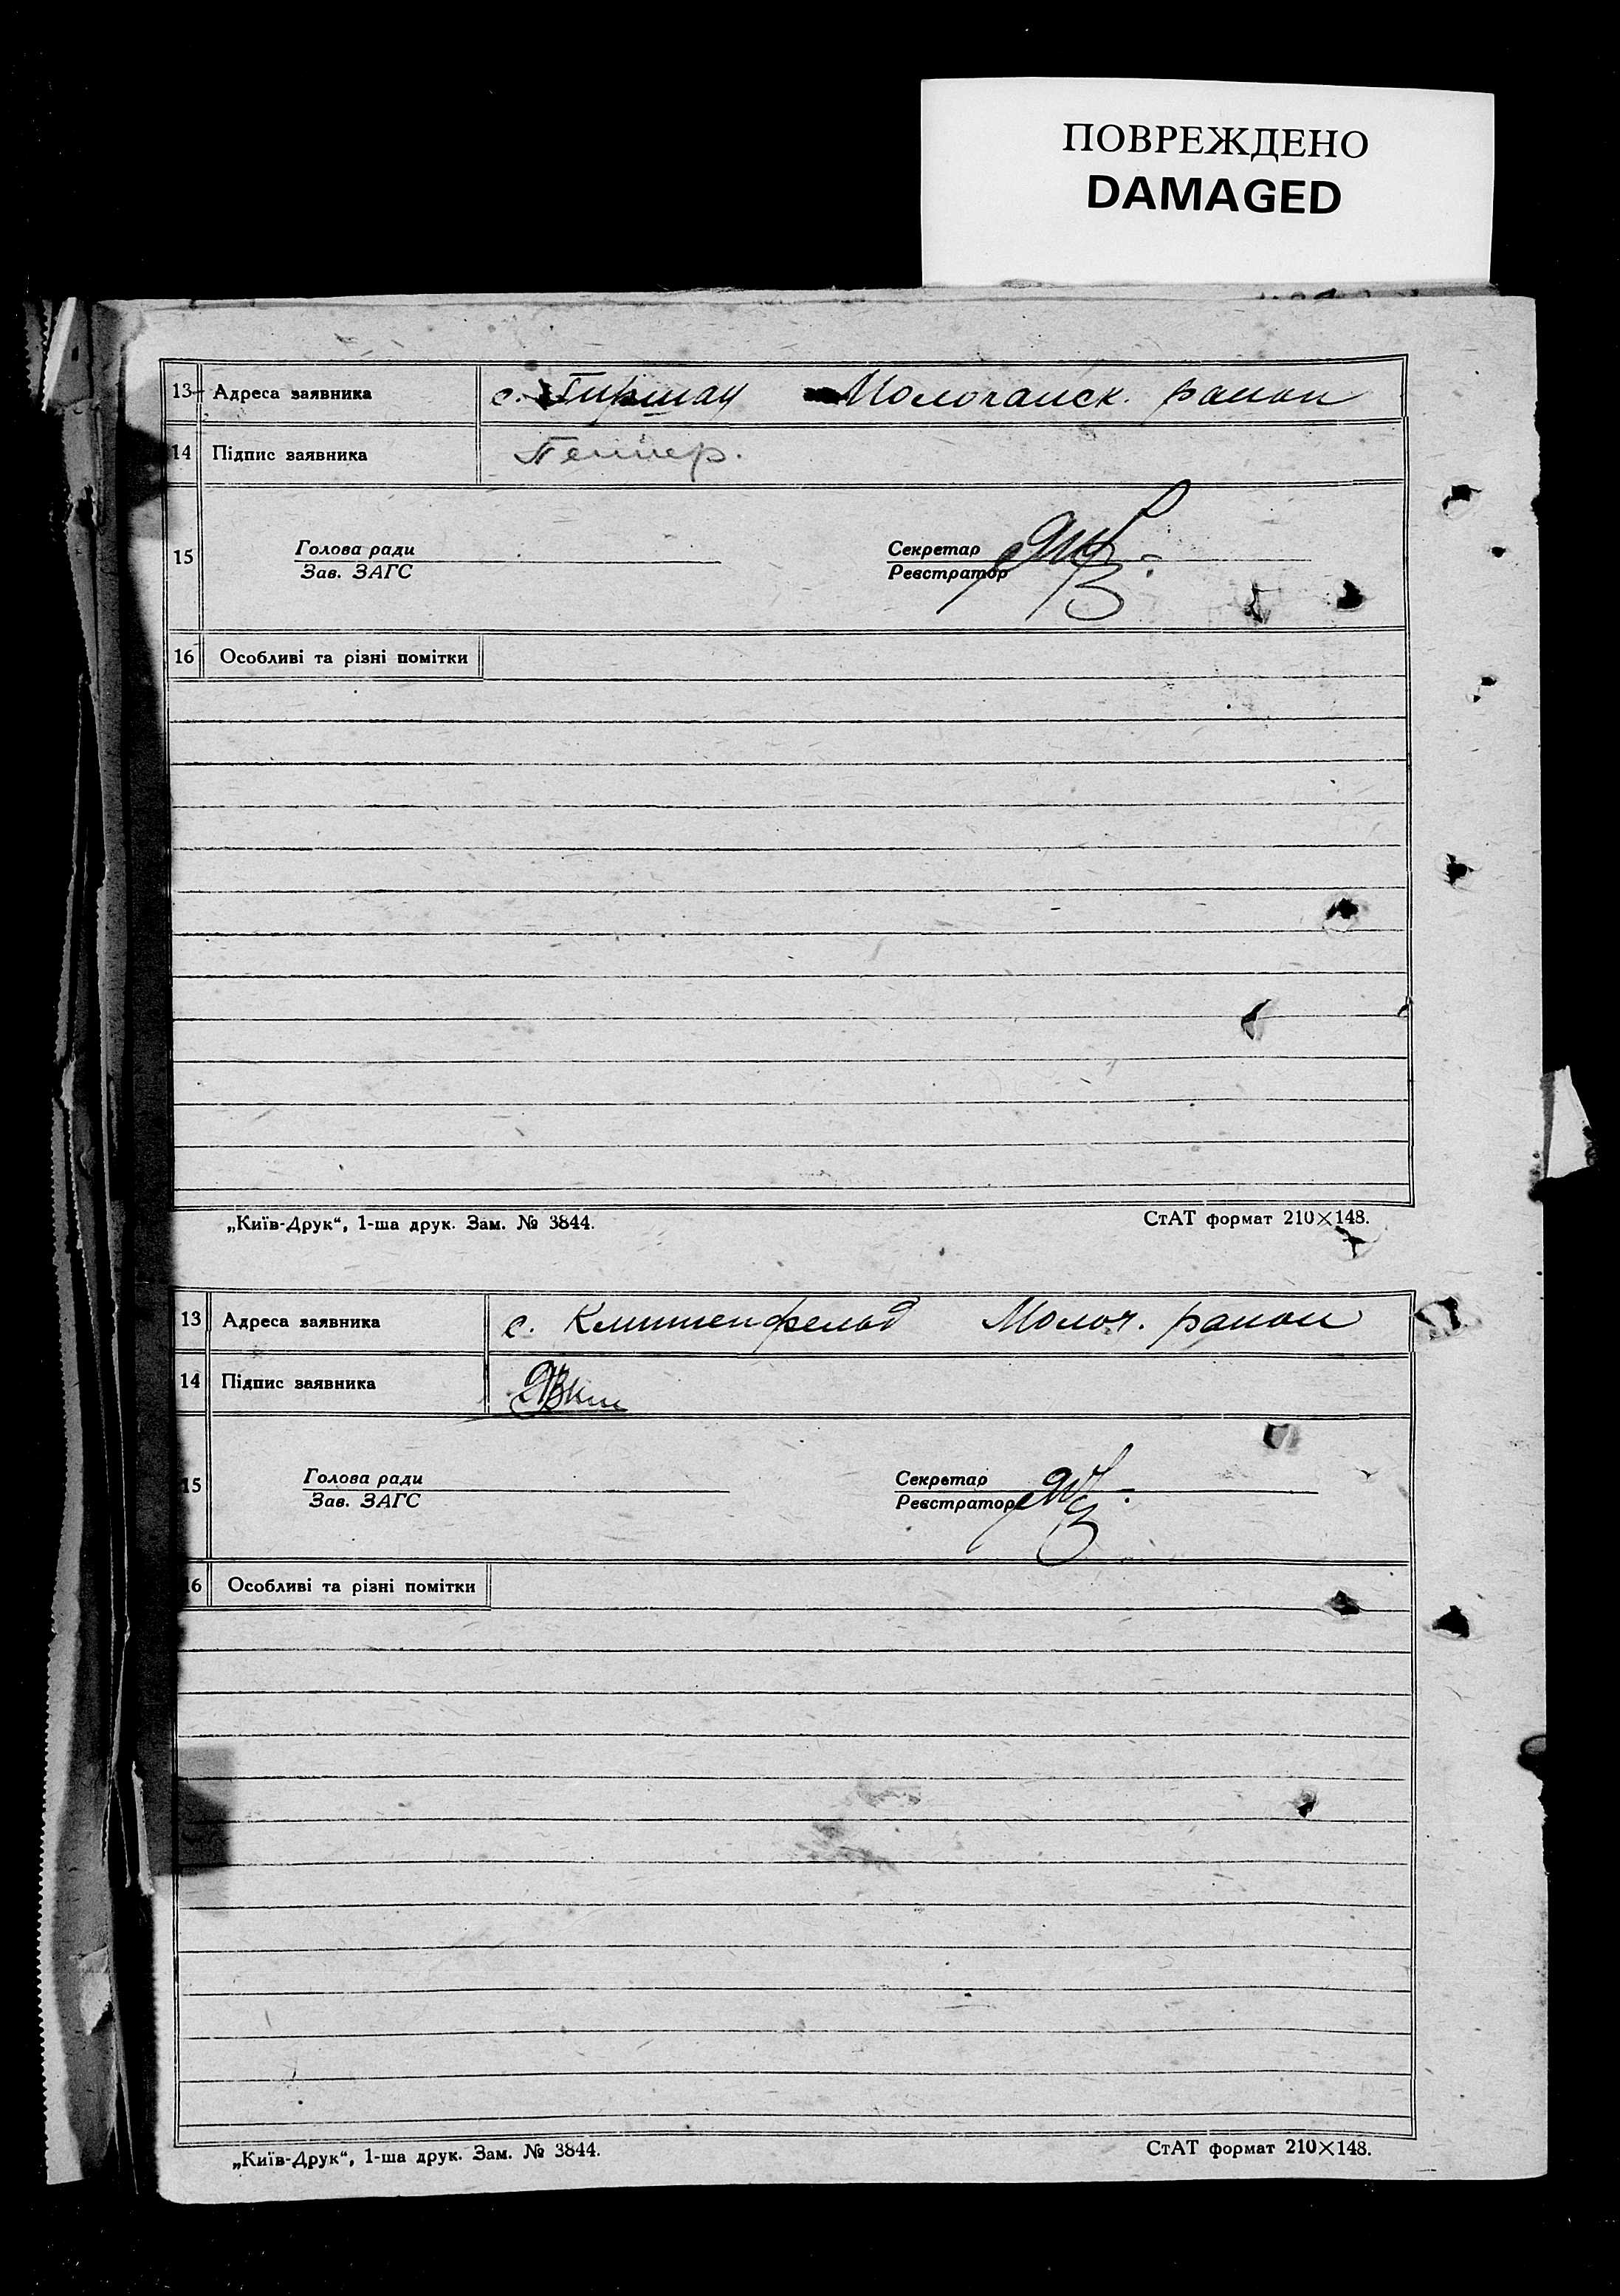 ПОВРЕЖДЕНО
DAMAGED
13 Адреса заявника с. Гиршау Молочанск. район
14 Підпис заявника
15 Голова ради Секретар
Зав. ЗАГС Реєстратор
16 Особливі та різні помітки
„Київ-Друк“, 1-ша друк. Зам. № 3844. СтАТ формат 210×148.
13 Адреса заявника с. Клиппенфельд Молоч. район
14 Підпис заявника
15 Голова ради Секретар
Зав. ЗАГС Реєстратор
16 Особливі та різні помітки
„Київ-Друк“, 1-ша друк. Зам. № 3844. СтАТ формат 210×148.